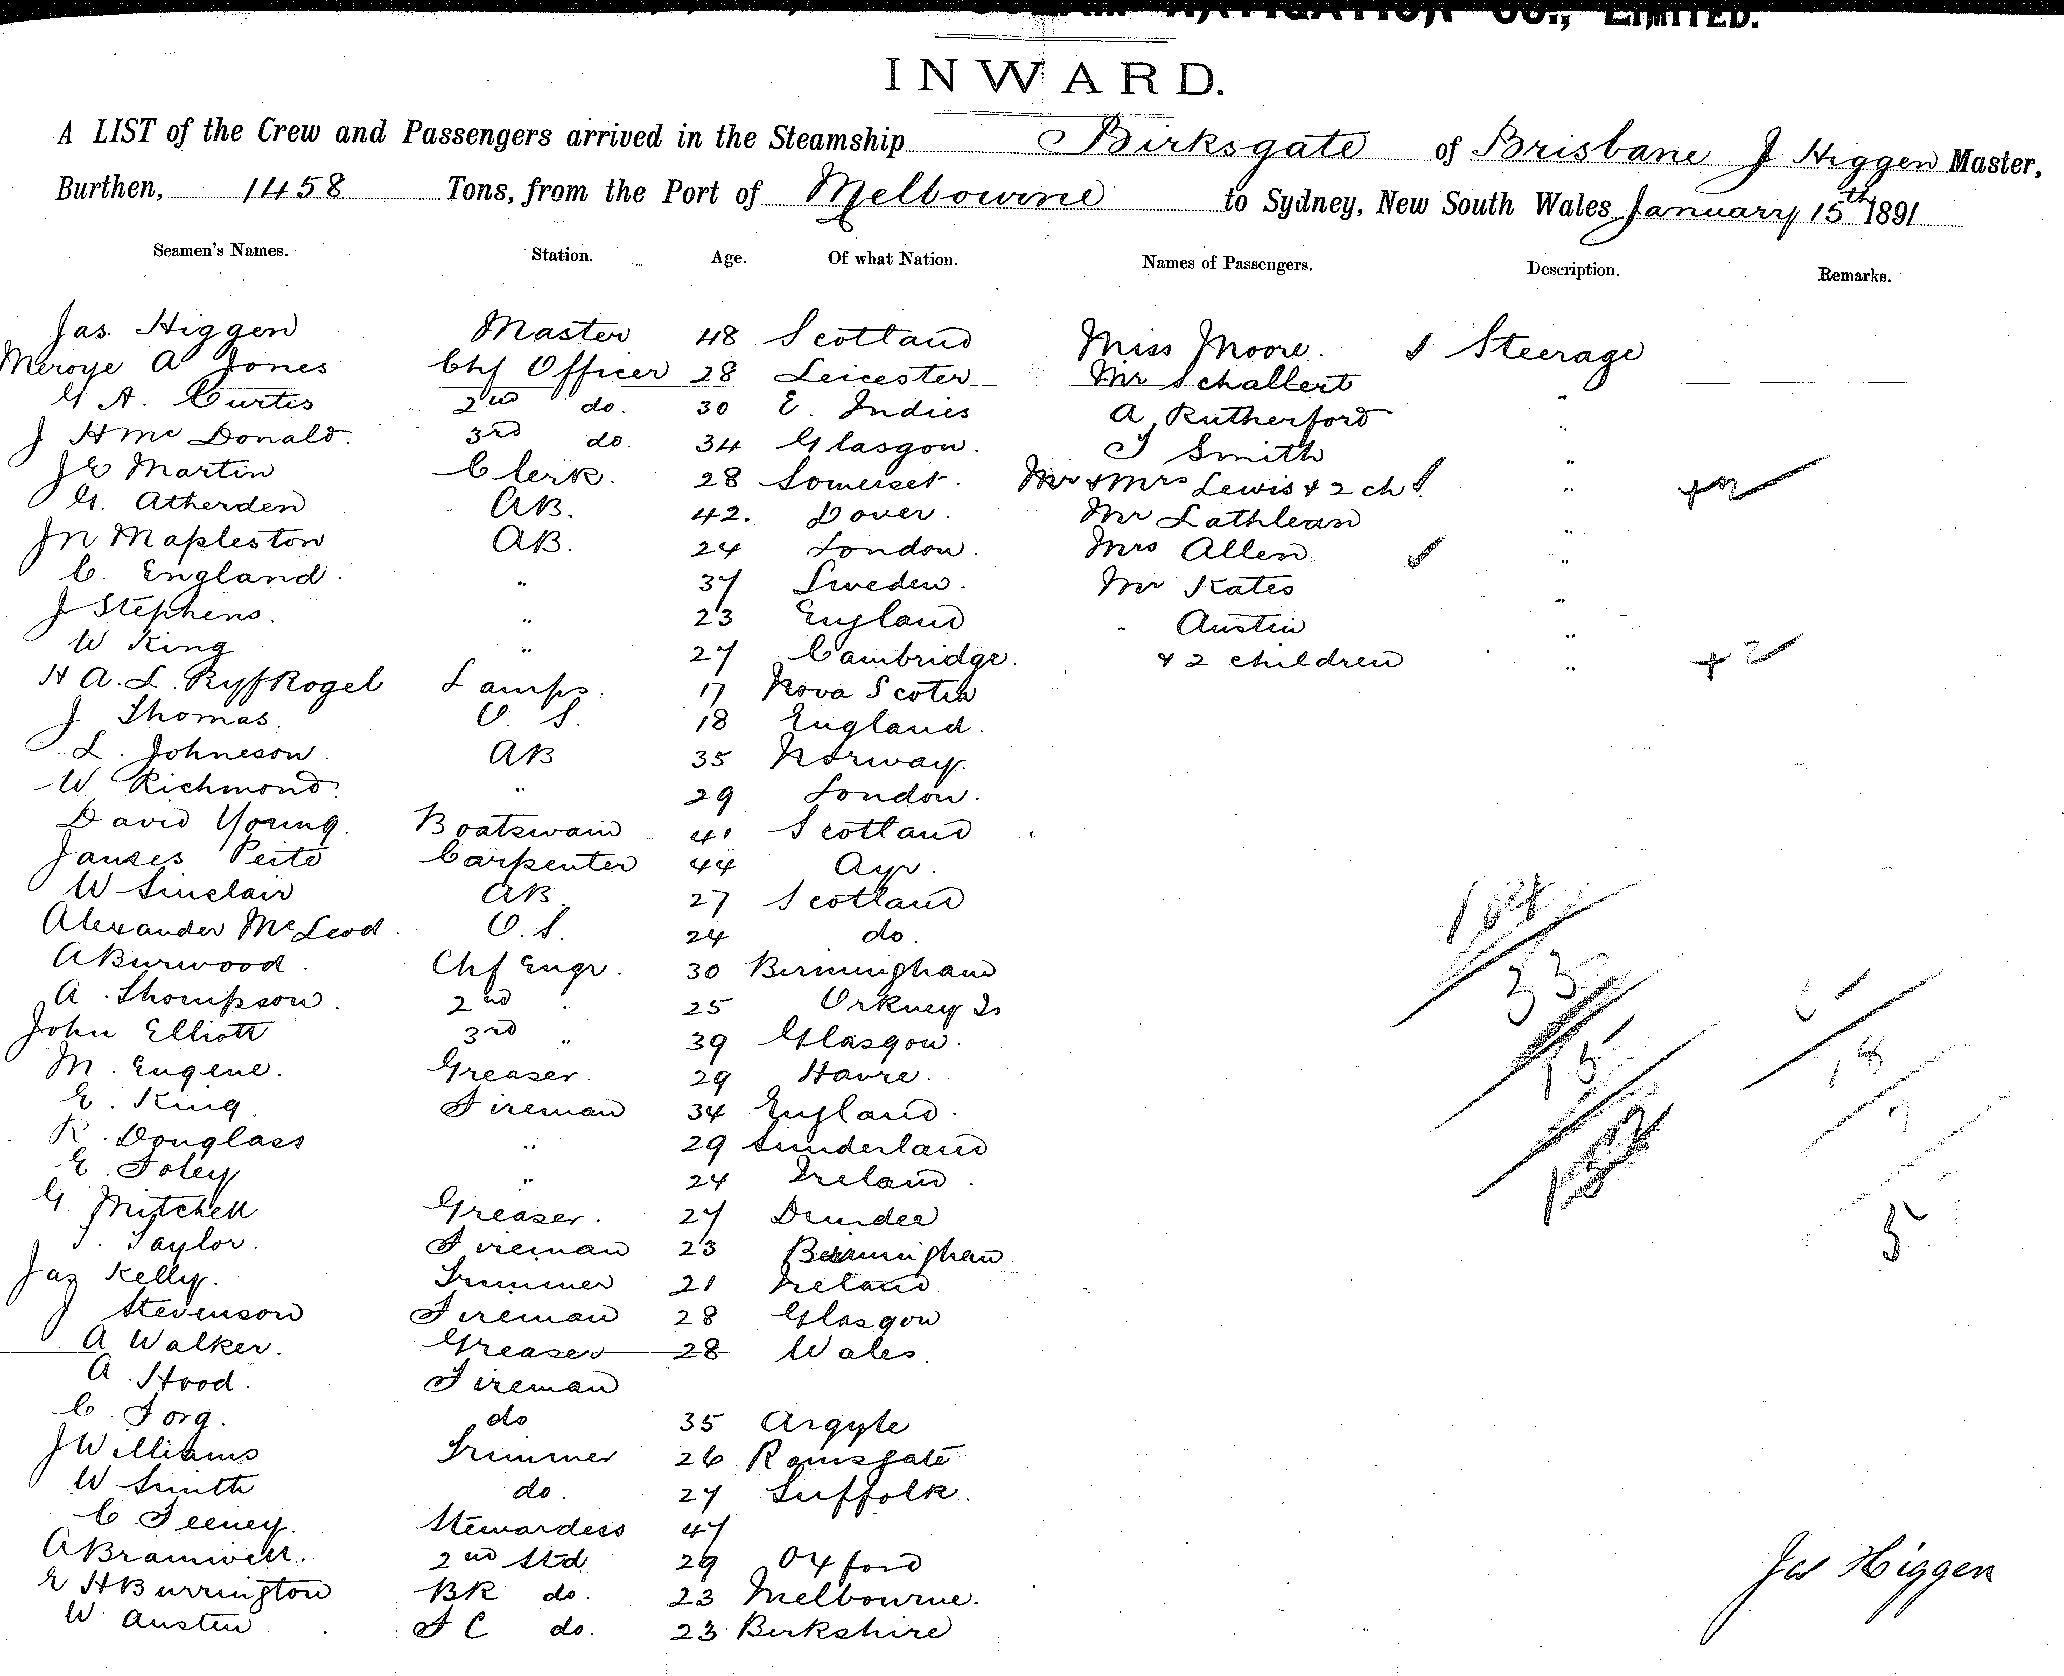 NAVIGATION CO., LIMITED.
INWARD.
A LIST of the Crew and Passengers arrived in the Steamship Birksgate of Brisbane J Higgen Master,
Burthen, 1458 Tons, from the Port of Melbourne to Sydney, New South Wales January 15th 1891
Seamen's Names. Station. Age. Of what Nation. Names of Passengers. Description. Remarks.
Jas. Higgen Master 48 Scotland Miss Moore. Steerage
A Jones Chf Officer 28 Leicester Mr Schallert
G A. Curtis 2nd do. 30 E. Indies A Rutherford "
J H Mc Donald. 3rd do. 34 Glasgow. T Smith "
J E Martin Clerk. 28 Somerset. Mr & Mrs Lewis & 2 ch " +2
G. Atherden AB. 42. Dover. Mr Lathlean "
Jn Mapleston AB. 24 London. Mrs Allen "
C. England. " 37 Sweden. Mr Kates "
J Stephens. " 23 England " Austin "
W King " 27 Cambridge. & 2 children " +2
H A. L. Lamps. 17 Nova Scotia
J Thomas. O. S. 18 England.
L. Johneson AB 35 Norway.
W Richmond. " 29 London.
David Young. Boatswain 41 Scotland
Carpenter 44 Ayr.
W Sinclair AB. 27 Scotland
Alexander McLeod. O. S. 24 do.
A Burwood. Chf Engr. 30 Birmingham
A. Thompson. 2nd " 25 Orkney Is
John Elliott 3rd " 39 Glasgow.
M. Eugene. Greaser. 29 Havre.
E. King Fireman 34 England.
R. Douglass " 29 Sunderland
E. Foley " 24 Ireland.
G Mitchell Greaser. 27 Dundee
Taylor. Fireman 23 Birmingham
Jas Kelly. Trimmer 21 Ireland
J Stevenson Fireman 28 Glasgow
A Walker. Greaser 28 Wales.
A Hood. Fireman
C. Torg. do 35 Argyle
J Williams Trimmer 26 Ramsgate
W Smith do. 27 Suffolk.
C Feeney. Stewardess 47
A Bramwell. 2nd Std 29 Oxford
E H Burrington BR do. 23 Melbourne.
W. Austen F C do. 23 Berkshire
33
15
18
5
Jas Higgen